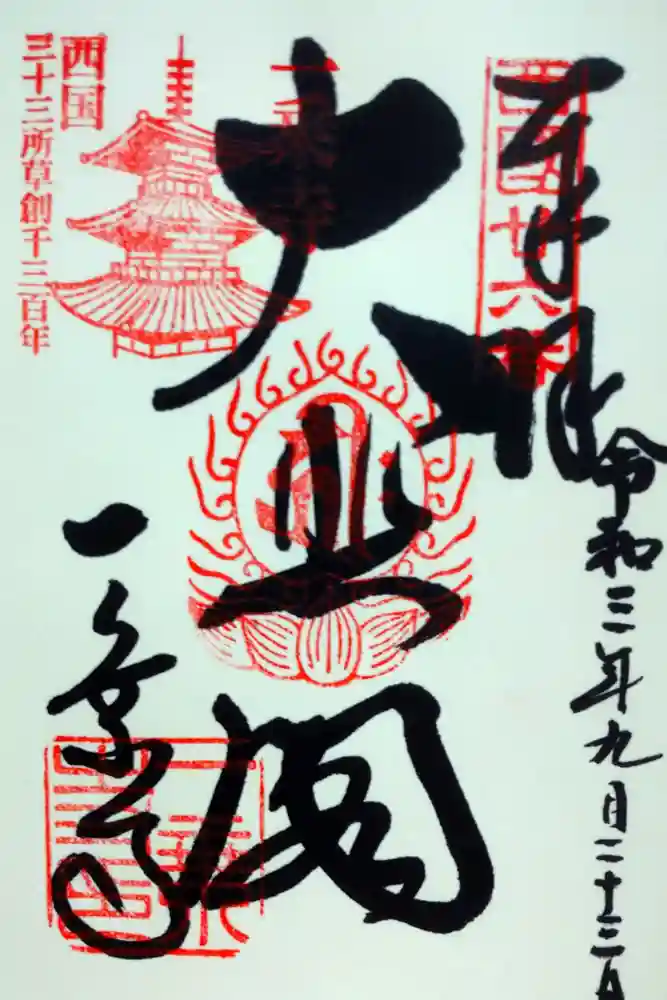 奉拝
西国廿六番
令和三年九月二十三日
大悲閣
一乗寺
西国
三十三所草創千三百年